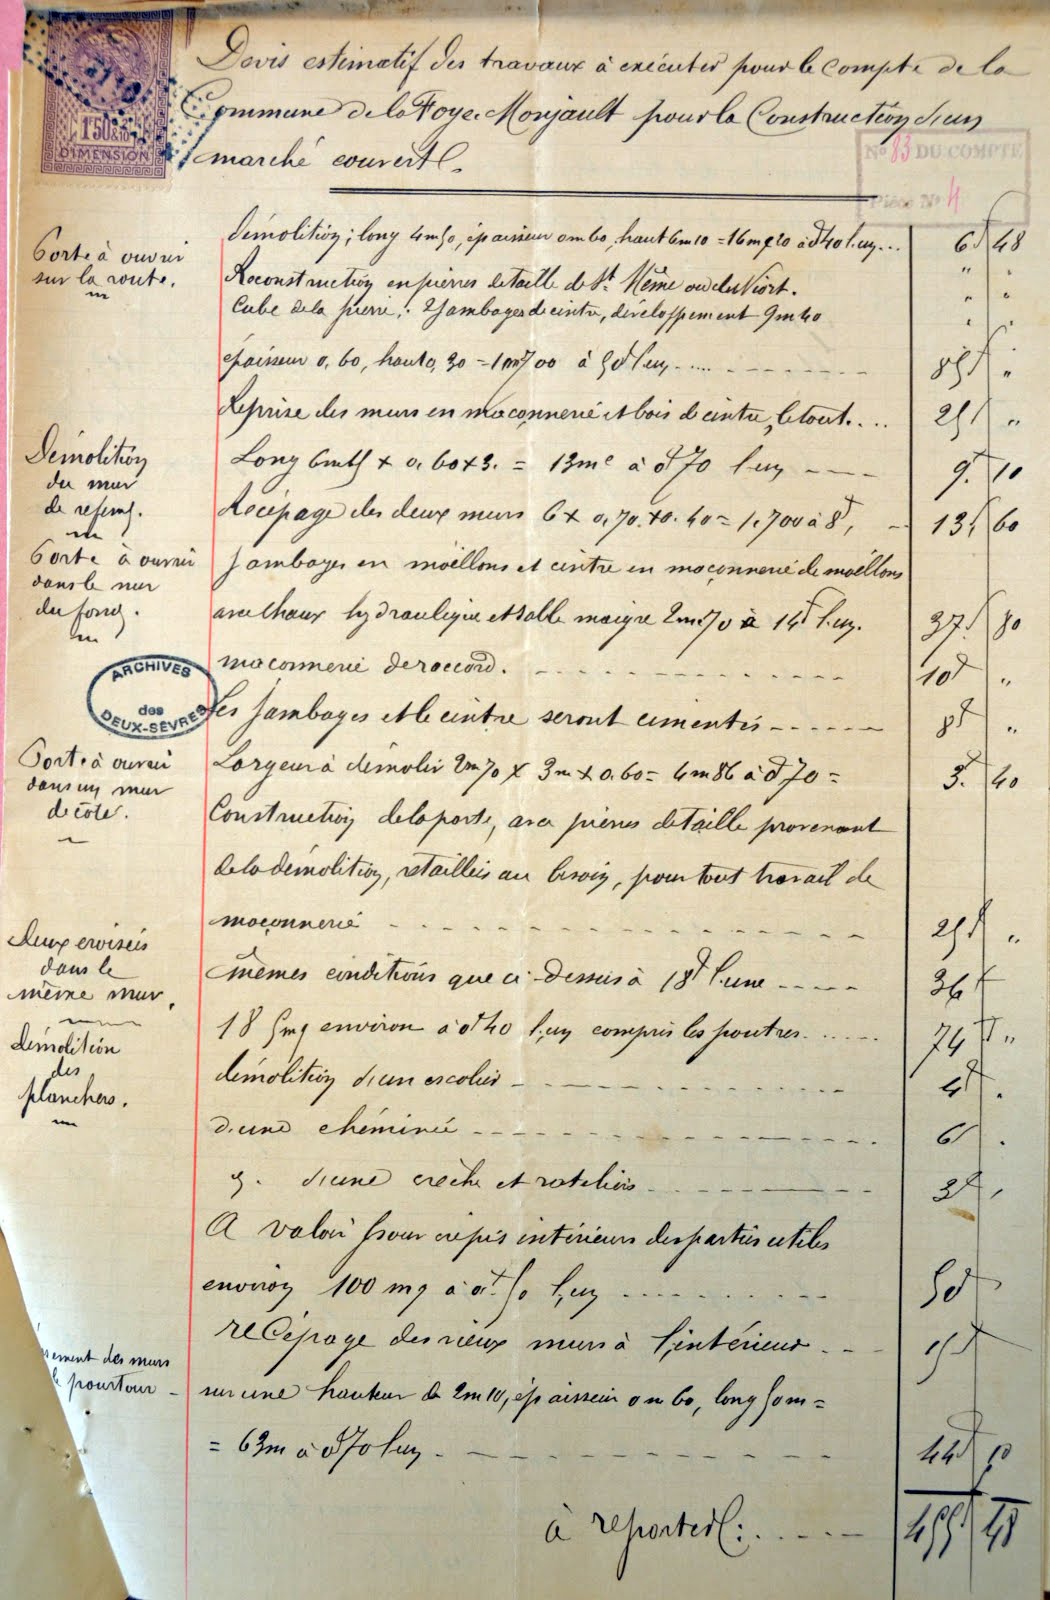 1F50 &
DIMENSION
Devis estimatif des travaux à exécuter pour le compte de la
Commune de la Foye-Monjault pour la Construction d'un
marché couvert.
N° 83 DU COMPTE
Pièce N° 4
Porte à ouvrir
sur la route.
démolition; long 4m50, épaisseur 0m60, haut 6m10 = 16m,20 à 0f40 l'un... 6f 48
Reconstruction en pierres de taille de St Même ou de Niort. " "
Cube de la pierre: 2 jambages de cintre, développement 9m40 " "
épaisseur 0,60, haut 0,30 = 1m700 à 50f l'un 85f "
Reprise des murs en maçonnerie et bois de cintre, le tout.... 25f "
Démolition
du mur
de refend.
Long 6m × 0.60 × 3. = 13mc à 0f70 l'un 9f 10
Recépage des deux murs 6 × 0,70 × 0.40 = 1.700 à 8f, 13f 60
Porte à ouvrir
dans le mur
du fond.
Jambages en moëllons et cintre en maçonnerie de moëllons
avec chaux hydraulique et sable maigre 2m,70 à 14f l'un. 37f 80
maçonnerie de raccord. 10f "
ARCHIVES
des
DEUX-SÈVRES
Les jambages et le cintre seront cimentés 8f "
Porte à ouvrir
dans un mur
de côté.
Largeur à démolir 2m70 × 3m × 0.60 = 4m86 à 0f70 = 3f 40
Construction de la porte, avec pierres de taille provenant
de la démolition, retaillées au besoin, pour tout travail de
maçonnerie 25f "
Deux croisées
dans le
même mur.
mêmes conditions que ci-dessus à 18f l'une 36f
Démolition
des
planchers.
185mq environ à 0f40 l'un compris les poutres 74f "
démolition d'un escalier 4f
d'une cheminée 6f
d'une crèche et rateliers 3f
A valoir pour crépis intérieurs des parties utiles
environ 100 mq à 0f.50 l'un 50f
recépage des vieux murs à l'intérieur 5f
sement des murs
pourtour
sur une hauteur de 2m10, épaisseur 0m60, long 50m =
= 63m à 0f70 l'un 44f 10
à reporter: 455f 48